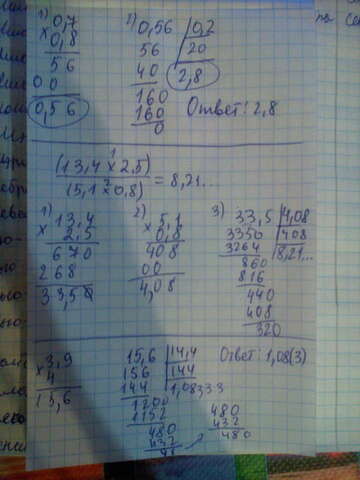 1) 0,7
× 0,8
56
00
0,56
2) 0,56 | 0,2
56 | 20
40 | 2,8
160
160
0
Ответ: 2,8
(13,4 × 2,5)
(5,1 × 0,8) = 8,21...
1 2
1) 13,4
× 2,5
670
268
33,50
2) 5,1
× 0,8
408
00
4,08
3) 33,5 | 4,08
3350 | 408
3264 | 8,21...
860
816
440
408
320
× 3,9
4
15,6
15,6 | 14,4
156 | 144
144 | 1,08333
1200
1152
480
432
48
480
432
480
Ответ: 1,08(3)